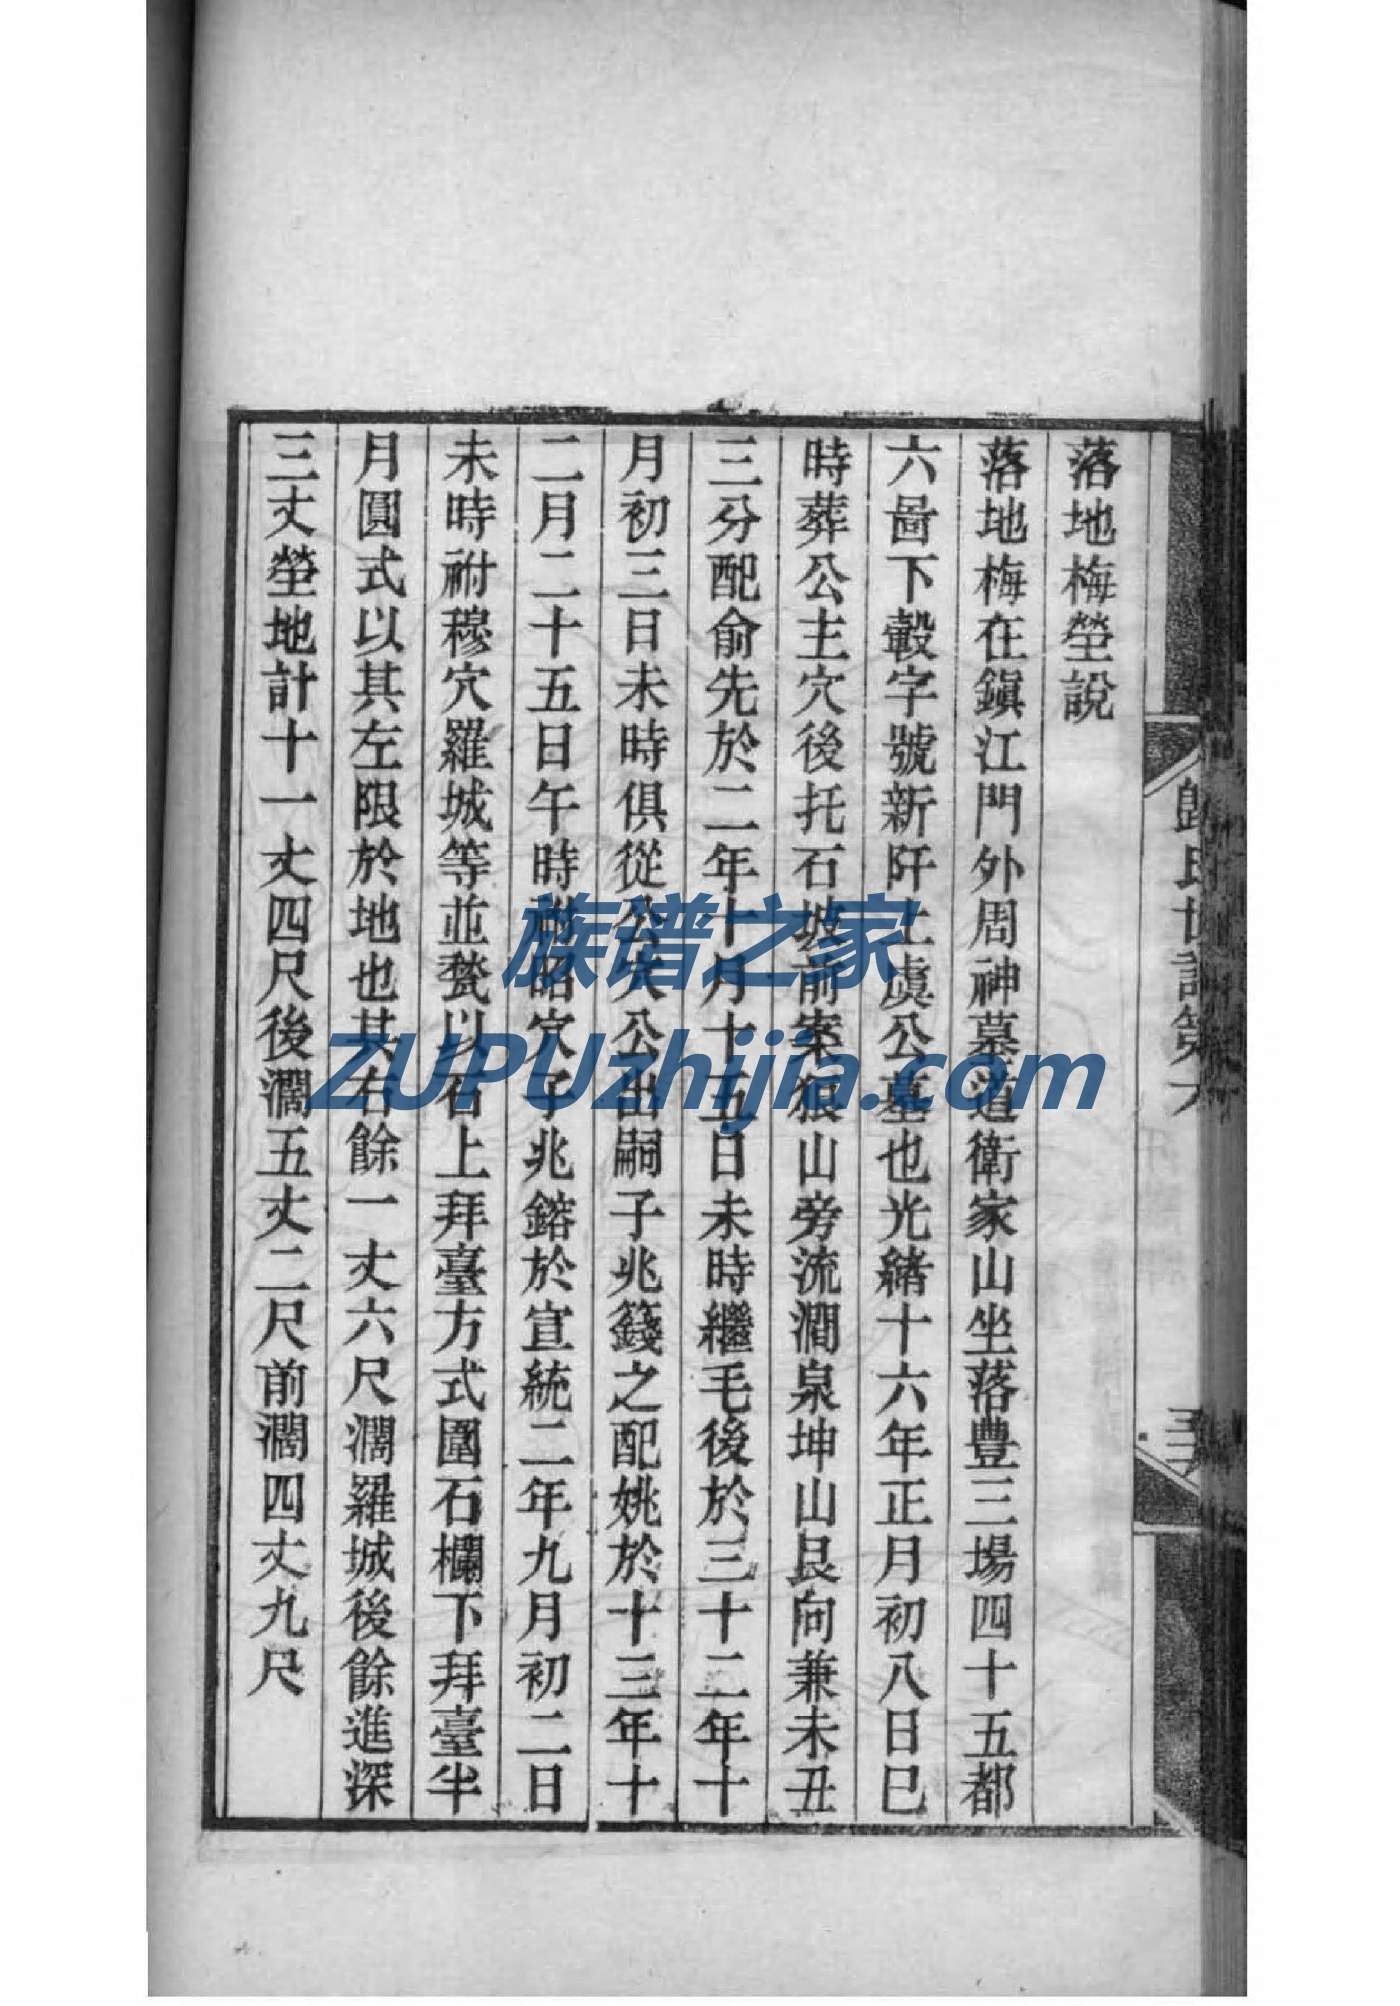 落地梅塋說
落地梅在鎭江門外周神墓道衛家山坐落豐三場四十五都
六啚下轂字號新阡上虞公墓也光緖十六年正月初八日巳
時葬公主穴後托石坡前案狼山旁流澗泉坤山艮向兼未丑
三分配俞先於二年十月十五日未時繼毛後於三十二年十
月初三日未時俱從公穴公出嗣子兆籛之配姚於十三年十
二月二十五日午時祔昭穴子兆鎔於宣統二年九月初二日
未時祔穆穴羅城等並甃以石上拜臺方式圍石欄下拜臺半
月圓式以其左限於地也其右餘一丈六尺濶羅城後餘進深
三丈塋地計十一丈四尺後濶五丈二尺前濶四丈九尺
氏世譜第六
族谱之家
ZUPUzhijia.com